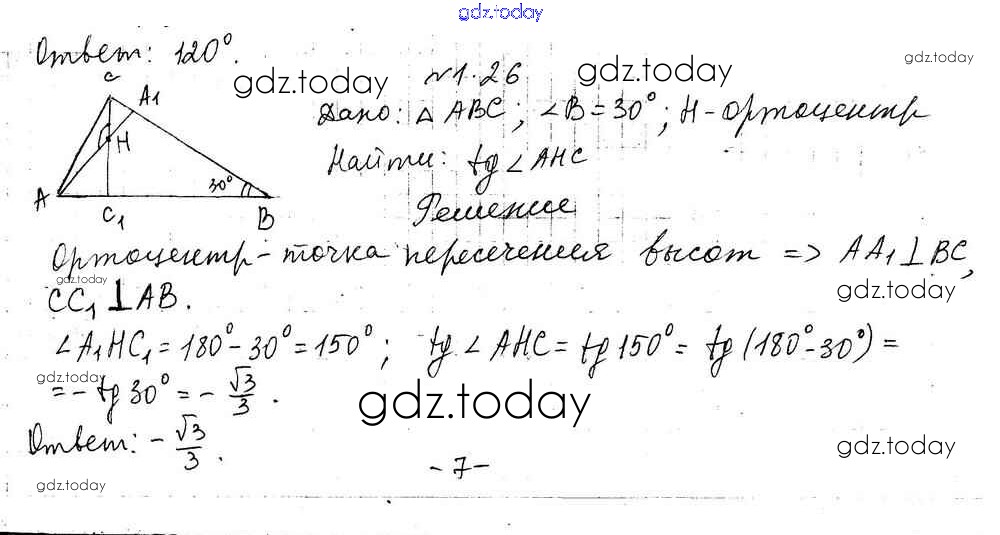 gdz.today
Ответ: 120°.
gdz.today
gdz.today
gdz.today
№1.26
Дано: △ ABC; ∠B = 30°; H - ортоцентр
Найти: tg ∠AHC
C A1
H
30°
A C1 B
Решение
Ортоцентр - точка пересечения высот => AA1 ⊥ BC,
gdz.today
gdz.today
CC1 ⊥ AB.
∠A1HC1 = 180° - 30° = 150°; tg ∠AHC = tg 150° = tg (180° - 30°) =
gdz.today
= - tg 30° = - √3/3.
gdz.today
Ответ: - √3/3.
gdz.today
- 7 -
gdz.today